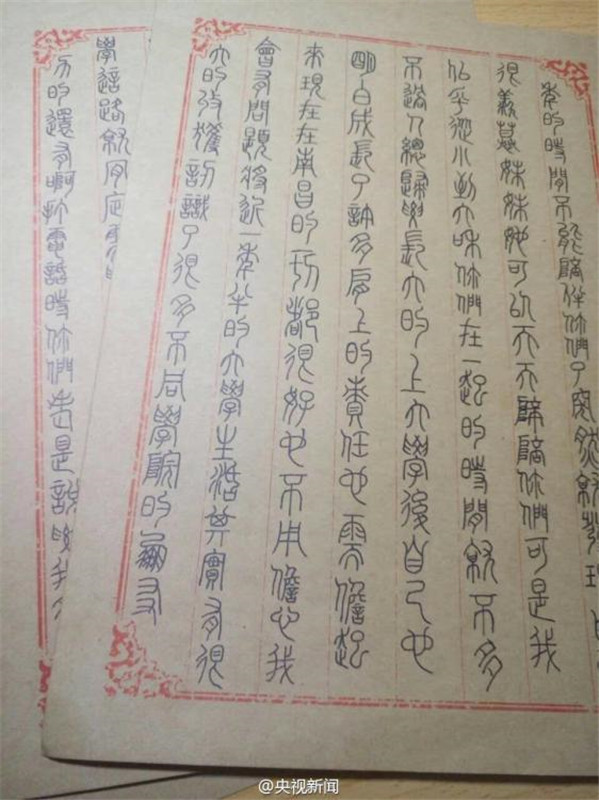 年的時間不能陪伴你們了突然就發現
很羨慕妹妹她可以天天陪陪你們可是我
似乎從小到大和你們在一起的時間就不多
不過人總歸要長大的上大學後自己也
明白成長了許多肩上的責任也要擔起
來現在在南昌的一切都很好也不用擔心我
會有問題將近一年半的大學生活其實有很
大的收穫認識了很多不同學院的朋友
學這路就有
方的還有啊打電話時你們老是說我
@央视新闻